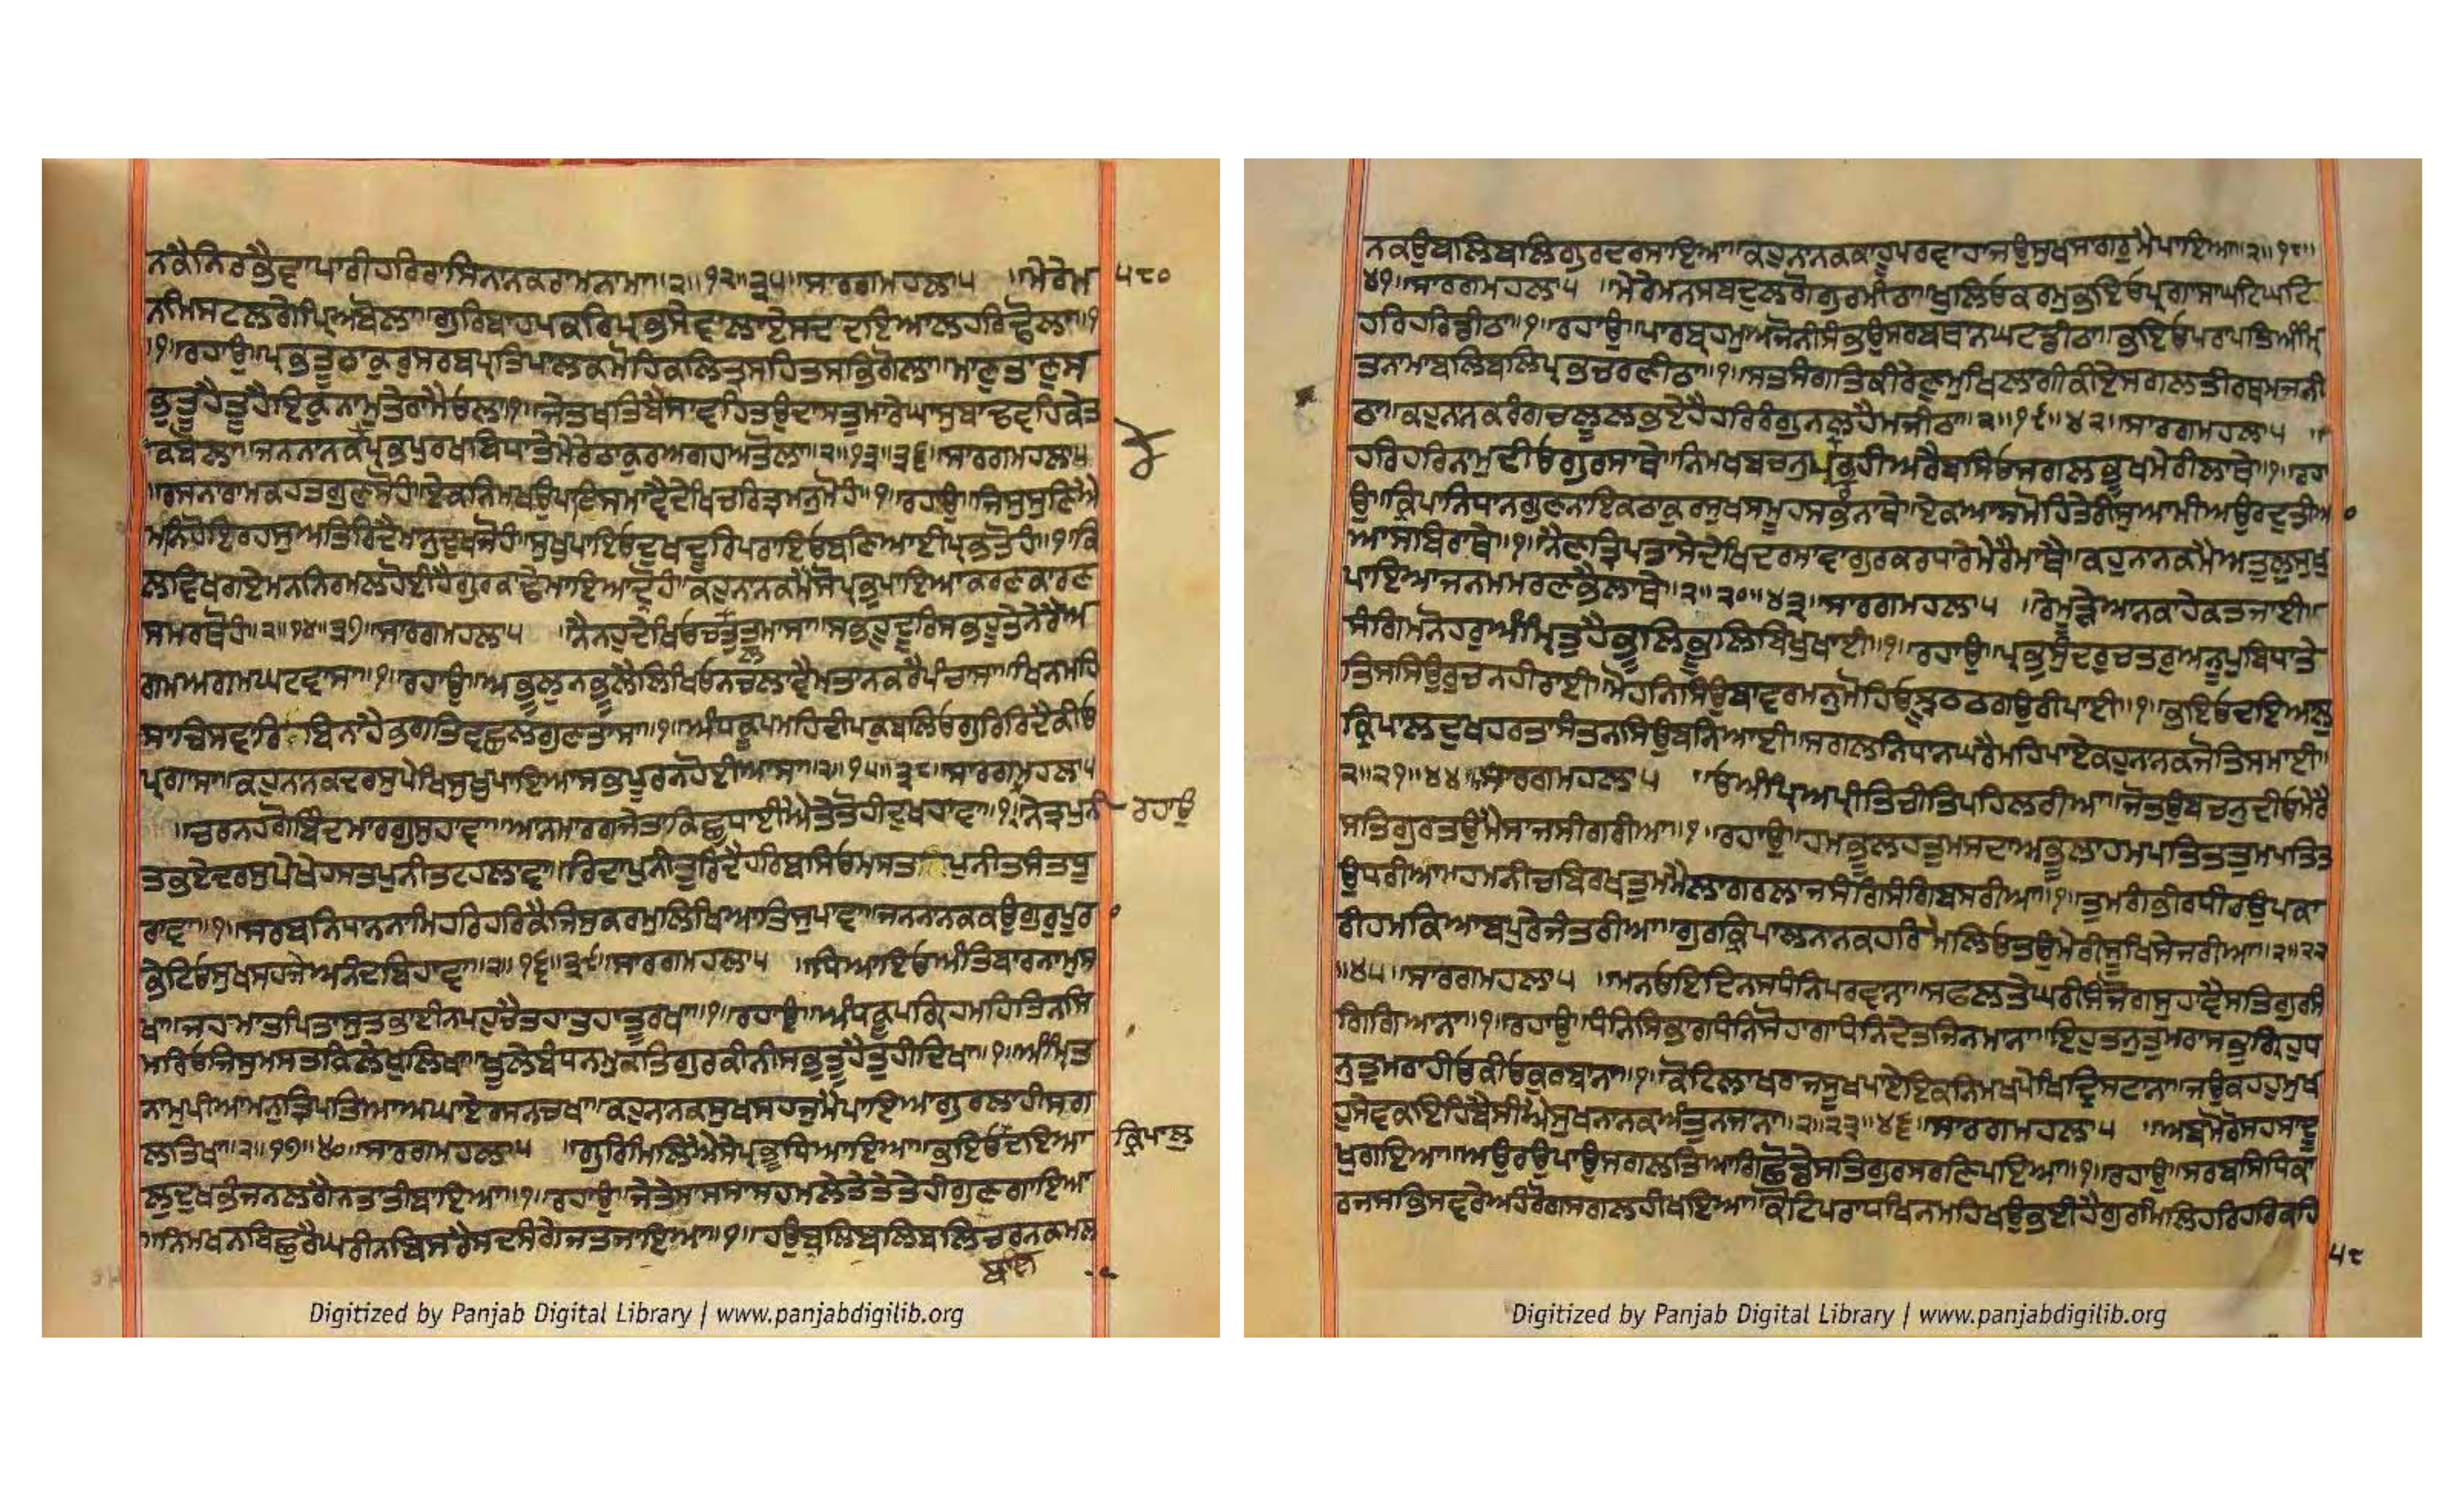 ਨਕੈਨਿਰਭੈਵਾਪਾਰੀਹਰਿਰਾਸਿਨਾਨਕਰਾਮਨਾਮਾ॥੨॥੧੨॥੩੫॥ਸਾਰਗਮਹਲਾ੫ ॥ਮੇਰੈਮ ੫੮੦
॥੧॥ਰਹਾਉ॥ਪ੍ਰਭਤੂਠਾਕੁਰੁਸਰਬਪ੍ਰਤਿਪਾਲਕ
ਭੁਤੂਹੈਤੂਹੈਇਕੁਨਾਮੁਤੇਰਾਮੈਓਲਾ॥੧॥
ਕਬੋਲਾ॥ਜਨਨਾਨਕੰਪ੍ਰਭਪੁਰਖਬਿਧਾਤੇਮੇਰੇਠਾਕੁਰਅਗਹਅਤੋਲਾ॥੨॥੧੩॥੩੬॥ਸਾਰਗਮਹਲਾ੫
॥ਰਸਨਰਾਮਕਹਤਗੁਣਸੋਹੰ॥ਏਕਨਿਮਖਉਪਾਇਸਮਾਵੈਦੇਖਿਚਰਿਤਮਨਮੋਹੰ॥੧॥ਰਹਾਉ॥ਜਿਸੁਸੁਣਿਐ
ਮਨਿਹੋਇਰਹਸੁਅਤਿਰਿਦੈਮਾਨਦੁਖਜੋਹੰ॥ਸੁਖੁਪਾਇਓਦੁਖਦੂਰਿਪਰਾਇਓਬਣਿਆਈਪ੍ਰਭਤੋਹੰ॥੧॥ਕਿ
ਲਵਿਖਗਏਮਨਨਿਰਮਲਹੋਈਹੈਗੁਰਕਾਢੇਮਾਇਆਦ੍ਰੋਹੰ॥ਕਹੁਨਾਨਕਮੈਸੋਪ੍ਰਭੁਪਾਇਆਕਰਣਕਾਰਣ
ਸਮਰਥੋਹੰ॥੨॥੧੪॥੩੭॥ਸਾਰਗਮਹਲਾ੫ ॥ਨੈਨਹੁਦੇਖਿਓਚਲਤੁਤਮਾਸਾ॥ਸਭਹੂਦੂਰਿਸਭਹੂਤੇਨੇਰੈਅ
ਗਮਅਗਮਘਟਵਾਸਾ॥੧॥ਰਹਾਉ॥ਅਭੂਲੁਨਭੂਲੈਲਿਖਿਓਨਚਲਾਵੈਮਤਾਨਕਰੈਪੰਚਾਸਾ॥ਖਿਨਮਹਿ
ਸਾਜਿਸਵਾਰਿਬਿਨਾਹੈਭਗਤਿਵਛਲਗੁਣਤਾਸਾ॥੧॥ਅੰਧਕੂਪਮਹਿਦੀਪਕੁਬਲਿਓਗੁਰਿਰਿਦੈਕੀਓ
ਪਰਗਾਸਾ॥ਕਹੁਨਾਨਕਦਰਸੁਪੇਖਿਸੁਖੁਪਾਇਆਸਭਪੂਰਨਹੋਈਆਸਾ॥੨॥੧੫॥੩੮॥ਸਾਰਗਮਹਲਾ੫
॥ਚਰਨਹਗੋਬਿੰਦਮਾਰਗੁਸੁਹਾਵਾ॥ਆਨਮਾਰਗਜੇਤਾਕਿਛੁਧਾਈਐਤੇਤੋਹੀਦੁਖਹਾਵਾ॥੧॥ਨੇਤ੍ਰਪੁਨੀ ਰਹਾਉ
ਤਭਏਦਰਸੁਪੇਖੇਹਸਤਪੁਨੀਤਟਹਲਾਵਾ॥ਰਿਦਾਪੁਨੀਤੁਰਿਦੈਹਰਿਬਸਿਓਮਸਤਪੁਨੀਤਸੰਤਧੂ
ਰਾਵਾ॥੧॥ਸਰਬਨਿਧਾਨਨਾਮਿਹਰਿਹਰਿਕੈਜਿਸੁਕਰਮਲਿਖਿਆਤਿਸੁਪਾਵਾ॥ਜਨਨਾਨਕਕਉਗੁਰੁਪੂਰਾ
ਭੇਟਿਓਸੁਖਸਹਜੇਅਨੰਦਬਿਹਾਵਾ॥੨॥੧੬॥੩੯॥ਸਾਰਗਮਹਲਾ੫ ॥ਧਿਆਇਓਅੰਤਿਬਾਰਨਾਮੁਸ
ਖਾ॥ਜਹਮਾਤਪਿਤਾਸੁਤਭਾਈਨਪਹੁਚੈਤਹਾਤਹਾਤੂਰਖਾ॥੧॥ਰਹਾਉ॥ਅੰਧਕੂਪਗ੍ਰਿਹਮਹਿਤਿਨਸਿ
ਮਰਿਓਜਿਸੁਮਸਤਕਿਲੇਖੁਲਿਖਾ॥ਖੂਲੇਬੰਧਨਮੁਕਤਿਗੁਰਕੀਨੀਸਭਤੂਹੈਤੂਹੀਦਿਖਾ॥੧॥ਅੰਮ੍ਰਿਤ
ਨਾਮੁਪੀਆਮਨੁਤ੍ਰਿਪਤਿਆਆਘਾਏਰਸਨਚਖਾ॥ਕਹੁਨਾਨਕਸੁਖਸਹਜੁਮੈਪਾਇਆਗੁਰਲਾਹੀਸਗ
ਲਤਿਖਾ॥੨॥੧੭॥੪੦॥ਸਾਰਗਮਹਲਾ੫ ॥ਗੁਰਮਿਲਿਐਸੇਪ੍ਰਭੂਧਿਆਇਆ॥ਭਇਓਦਇਆ ਕ੍ਰਿਪਾਲੁ
ਲੁਦੁਖਭੰਜਨਲਗੈਨਤਾਤੀਬਾਇਆ॥੧॥ਰਹਾਉ॥ਜੇਤੇਸਾਸਸਾਸਹਮਲੇਤੇਤੇਤੇਹੀਗੁਣਗਾਇਆ
॥ਨਿਮਖਨਬਿਛੁਰੈਘਰੀਨਬਿਸਰੈਸਦਸੰਗੇਜਤਜਾਇਆ॥੧॥ਹਉਬਲਿਬਲਿਬਲਿਬਲਿਚਰਨਕਮਲ
Digitized by Panjab Digital Library | www.panjabdigilib.org
ਨਕਉਬਲਿਬਲਿਗੁਰਦਰਸਾਇਆ॥ਕਹੁਨਾਨਕਕਾਹੂਪਰਵਾਹਾਜਉਸੁਖਸਾਗਰੁਮੈਪਾਇਆ॥੨॥੧੮॥
੪੧॥ਸਾਰਗਮਹਲਾ੫ ॥ਮੇਰੈਮਨਸਬਦੁਲਗੋਗੁਰਮੀਠਾ॥ਖੁਲਿਓਕਰਮੁਭਇਓਪ੍ਰਗਾਸਾਘਟਿਘਟਿ
ਹਰਿਹਰਿਡੀਠਾ॥੧॥ਰਹਾਉ॥ਪਾਰਬ੍ਰਹਮਆਜੋਨੀਸੰਭਉਸਰਬਥਾਨਘਟਬੀਠਾ॥ਭਇਓਪਰਾਪਤਿਅੰਮ੍ਰਿ
ਤਨਾਮਾਬਲਿਬਲਿਪ੍ਰਭਚਰਣੀਠਾ॥੧॥ਸਤਸੰਗਤਿਕੀਰੇਣੁਮੁਖਿਲਾਗੀਕੀਏਸਗਲਤੀਰਥਮਜਨੀ
ਠਾ॥ਕਹੁਨਾਨਕਰੰਗਚਲੂਲਭਏਹੈਹਰਿਰੰਗੁਨਲਹੈਮਜੀਠਾ॥੨॥੧੯॥੪੨॥ਸਾਰਗਮਹਲਾ੫
ਹਰਿਹਰਿਨਾਮੁਦੀਓਗੁਰਸਾਥੇ॥ਨਿਮਖਬਚਨੁਪ੍ਰਭਹੀਅਰੈਬਸਿਓਸਗਲਭੂਖਮੇਰੀਲਾਥੇ॥੧॥ਰਹਾ
ਉ॥ਕ੍ਰਿਪਾਨਿਧਾਨਗੁਣਨਾਇਕਠਾਕੁਰਸੁਖਸਮੂਹਸਭਨਾਥੇ॥ਏਕਆਸਮੋਹਿਤੇਰੀਸੁਆਮੀਅਉਰਦੁਤੀਆ
ਆਸਬਿਰਾਥੇ॥੧॥ਨੈਣਤ੍ਰਿਪਤਾਸੇਦੇਖਿਦਰਸਾਵਾਗੁਰਕਰਧਾਰੇਮੇਰੈਮਾਥੈ॥ਕਹੁਨਾਨਕਮੈਅਤੁਲਸੁਖੁ
ਪਾਇਆਜਨਮਮਰਣਭੈਲਾਥੇ॥੨॥੨੦॥੪੩॥ਸਾਰਗਮਹਲਾ੫ ॥ਰੇਮੂੜੇਆਨਕਾਹੇਕਤਜਾਈ॥
ਸੰਗਿਮਨੋਹਰੁਅੰਮ੍ਰਿਤੁਹੈਭੂਲਿਭੂਲਿਬਿਖੁਖਾਈ॥੧॥ਰਹਾਉ॥ਪ੍ਰਭਸੁੰਦਰਚਤੁਰਅਨੂਪਬਿਧਾਤੇ
ਤਿਸਸਿਉਰੁਚਨਹੀਰਾਈ॥ਮੋਹਨਿਸਿਉਬਾਵਰਮਨੁਮੋਹਿਓਝੂਠਠਗਉਰੀਪਾਈ॥੧॥ਭਇਓਦਇਆਲੁ
ਕ੍ਰਿਪਾਲਦੁਖਹਰਤਾਸੰਤਨਸਿਉਬਨਿਆਈ॥ਸਗਲਨਿਧਾਨਘਰੈਮਹਿਪਾਏਕਹੁਨਾਨਕਜੋਤਿਸਮਾਈ॥
੨॥੨੧॥੪੪॥ਸਾਰਗਮਹਲਾ੫ ॥ਓਅੰਪ੍ਰਿਅਪ੍ਰੀਤਿਚੀਤਿਪਹਿਲਰੀਆ॥ਜੋਤਉਬਚਨੁਦੀਓਮੇਰੈ
ਸਤਿਗੁਰਤਉਮੈਸਾਜਸੀਗਰੀਆ॥੧॥ਰਹਾਉ॥ਹਮਭੂਲਹਤੁਮਸਦਾਅਭੂਲਾਹਮਪਤਿਤਤੁਮਪਤਿਤ
ਉਧਰੀਆ॥ਹਮਨੀਚਬਿਰਖਤੁਮਮੈਲਾਗਰਲਾਜਸੰਗਿਸੰਗਿਬਸਰੀਆ॥੧॥ਤੁਮਗੰਭੀਰਧੀਰਉਪਕਾ
ਰੀਹਮਕਿਆਬਪੁਰੇਜੰਤਰੀਆ॥ਗੁਰਕ੍ਰਿਪਾਲਨਾਨਕਹਰਿਮੇਲਿਓਤਉਮੇਰੀਸੂਖਿਸੇਜਰੀਆ॥੨॥੨੨
॥੪੫॥ਸਾਰਗਮਹਲਾ੫ ॥ਮਨਓਇਦਿਨਸਧੰਨਿਪਰਵਾਨਾ॥ਸਫਲਤੇਘਰੀਸੰਜੋਗਸੁਹਾਵੈਸਤਿਗੁਰਸੰ
ਗਿਗਿਆਨਾ॥੧॥ਰਹਾਉ॥ਧੰਨਿਸਿਭਾਗਧੰਨਿਸੋਹਾਗਾਧੰਨਿਦੇਤਜਿਨਮਾਨਾ॥ਇਹੁਤਨੁਤੁਮਰਾਸਭੁਗ੍ਰਿਹੁਧ
ਨੁਤੁਮਰਾਹੀਓਕੀਓਕੁਰਬਾਨਾ॥੧॥ਕੋਟਿਲਾਖਰਾਜਸੁਖਪਾਏਇਕਨਿਮਖਪੇਖਿਦ੍ਰਿਸਟਾਨਾ॥ਜਉਕਹਹੁਮੁਖ
ਹੁਸੇਵਕਇਹਬੈਸੀਐਸੁਖਨਾਨਕਅੰਤੁਨਜਾਨਾ॥੨॥੨੩॥੪੬॥ਸਾਰਗਮਹਲਾ੫ ॥ਅਬਮੋਰੋਸਹਸਾਦੂ
ਖੁਗਇਆ॥ਅਉਰਉਪਾਉਸਗਲਤਿਆਗਿਛੋਡੇਸਤਿਗੁਰਸਰਣਿਪਇਆ॥੧॥ਰਹਾਉ॥ਸਰਬਸਿਧਿਕਾ
ਰਜਸਭਿਸਵਰੇਅਹੰਰੋਗਸਗਲਹੀਖਇਆ॥ਕੋਟਿਪਰਾਧਖਿਨਮਹਿਖਉਭਈਹੈਗੁਰਮਿਲਿਹਰਿਹਰਿਕਹਿ
Digitized by Panjab Digital Library | www.panjabdigilib.org